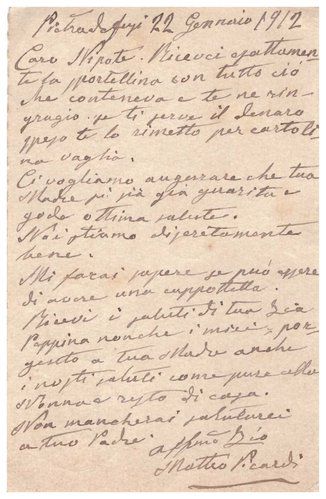 Pietradefusi 22 Gennaio 1912
Caro Nipote. Ricevei esattamen-
te la sportellina con tutto ciò
che conteneva e te ne rin-
grazio. se ti serve il denaro
speso te lo rimetto per cartoli-
na vaglia.
Ci vogliamo augurare che tua
Madre si sia già guarita e
goda ottima salute.
Noi stiamo discretamente
bene.
Mi farai sapere se può essere
di avere una cappottella.
Ricevi i saluti di tua Zia
Peppina nonche i miei = por-
gendo a tua Madre anche
i nostri saluti come pure alla
Nonna e resto di casa.
Non mancherai salutarci
a tuo Padre.
affmo Zio
Matteo Picardi